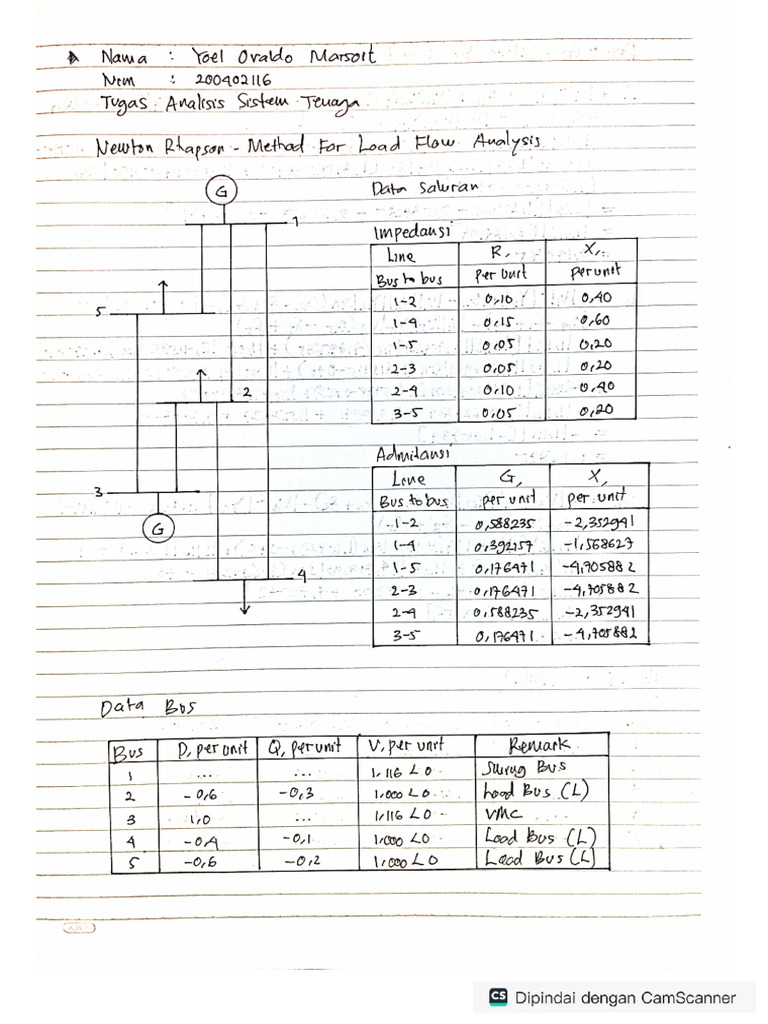 Nama : Yoel Ovaldo Marsoit
Nim : 200402116
Tugas Analisis Sistem Tenaga
Newton Rhapson - Method For Load Flow Analysis
G
1
5
2
3
G
4
Data Saluran
Impedansi
Line Bus to bus | R, per unit | X, per unit
1-2 0,10 0,40
1-4 0,15 0,60
1-5 0,05 0,20
2-3 0,05 0,20
2-4 0,10 0,40
3-5 0,05 0,20
Admitansi
Line Bus to bus | G, per unit | X, per unit
1-2 0,588235 -2,352941
1-4 0,392157 -1,568627
1-5 0,176471 -4,705882
2-3 0,176471 -4,705882
2-4 0,588235 -2,352941
3-5 0,176471 -4,705882
Data Bus
Bus | P, per unit | Q, per unit | V, per unit | Remark
1 ... ... 1,116 ∠0 Swing Bus
2 -0,6 -0,3 1,000 ∠0 Load Bus (L)
3 1,0 ... 1,116 ∠0 VMC
4 -0,4 -0,1 1,000 ∠0 Load Bus (L)
5 -0,6 -0,2 1,000 ∠0 Load Bus (L)
CS Dipindai dengan CamScanner